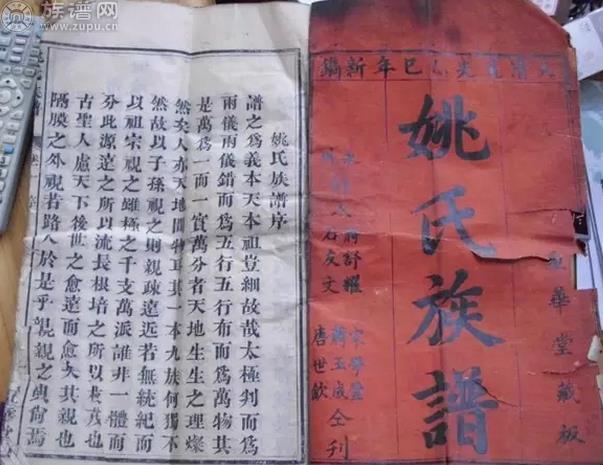 大清光緒乙巳年新鐫
華堂藏板
姚氏族譜
宋學
蔣玉成
唐世欽
仝刊
蔣舒耀
石友文
姚氏族譜序
譜之為義本天本祖豈細故哉太極判而為
兩儀兩儀錯而為五行五行布而為萬物其
是萬為一而一實萬分者天地生生之理燦
然矣人亦天地間物耳其一本九族何獨不
然故以子孫視之則親疎遠近若無統紀而
以祖宗視之雖極之千支萬派誰非一體而
分此源遠之所以流長根培之所以枝茂也
古聖人處天下後世之愈遠而愈失其親也
隔膜之外視若路人於是乎親親之典尚焉
族谱网
www.zupu.cn